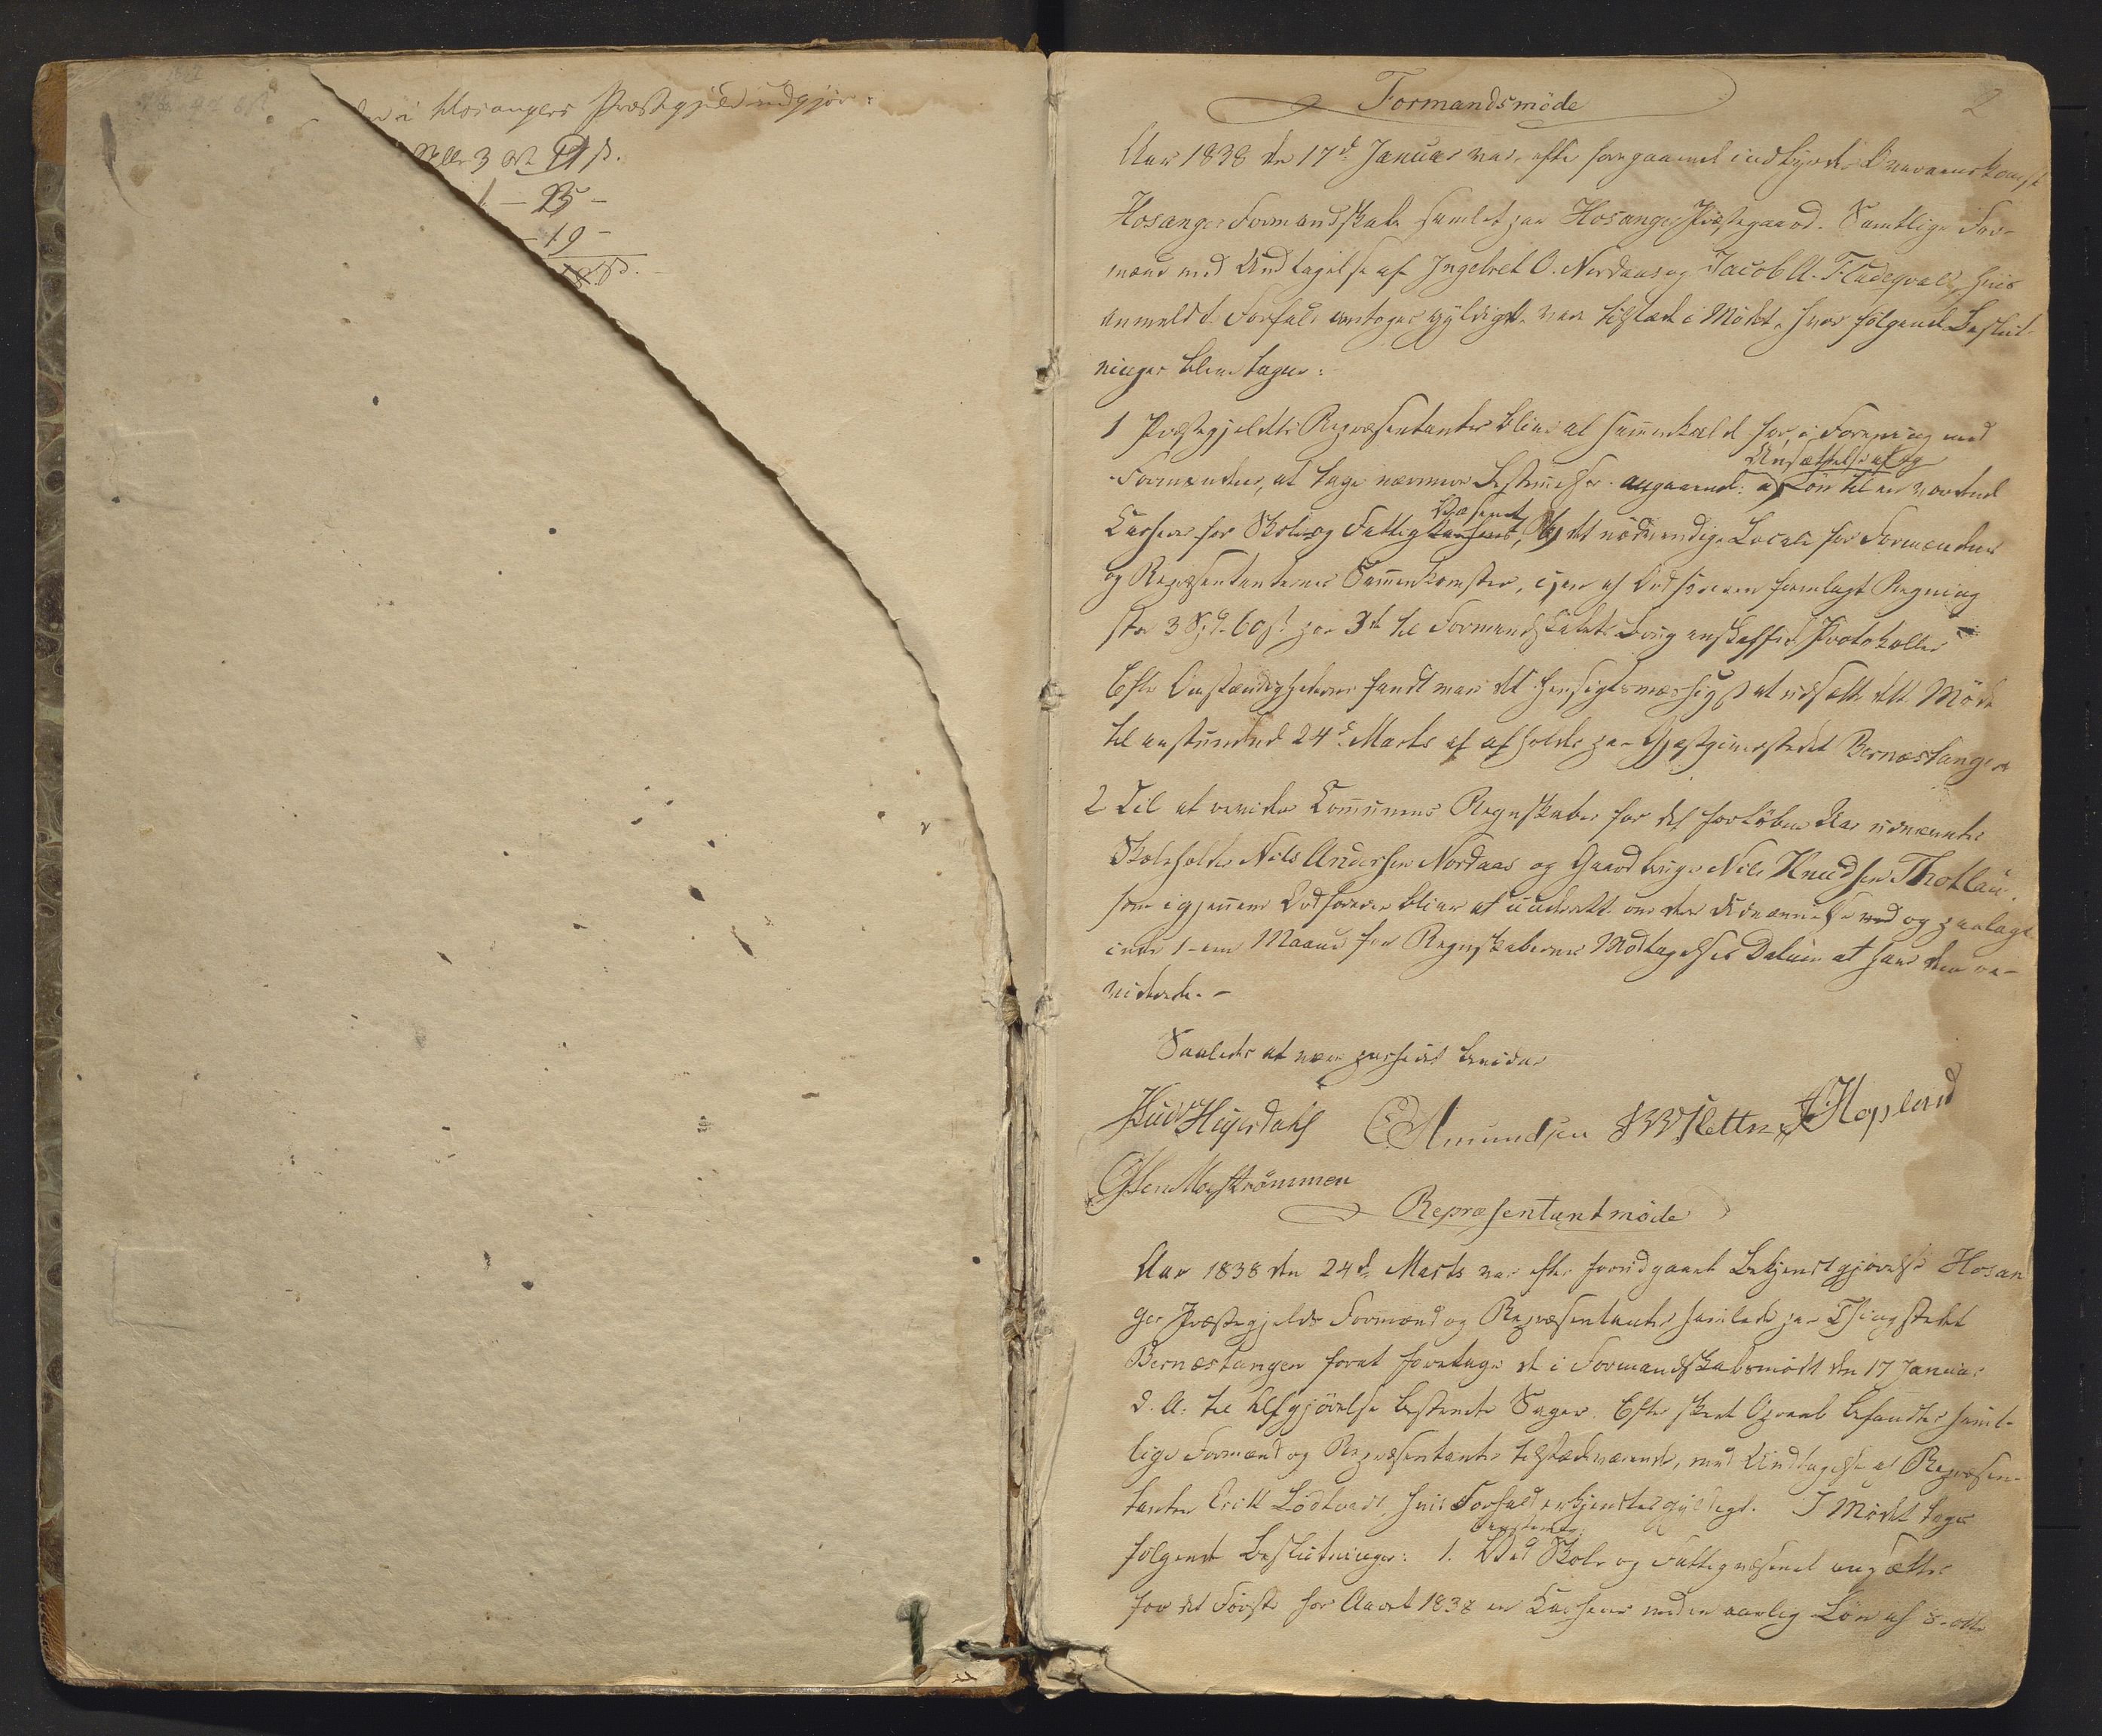 i Hosangers Præstegjeld udgjør:
3 Ort 11 ß.
1 – 23 –
– 19 –
2
Formandsmöde
Aar 1838 den 17d Januar var efter foregaaend indbyrdes Overeenskomst
Hosanger Formandskab samlet paa Hosanger Præstegaard. Samtlige For-
mænd med Undtagelse af Ingebret O. Nordaas og Jacob A. Fladeqval, hvis
anmeldte Forfald antoges gyldigt, var tilstæde i Mödet, hvor fölgende Beslut-
ninger bleve tagne:
1 Præstegjeldets Repræsentanter bliver at sammenkalde for, i Forening med
Ansættelse af og
Formændene, at tage nærmere Bestemmelser angaaende: a) Lön til en vordende
Væsenet
Casserer for Skole og Fattig, b) det nödvendige Locale for Formændenes
og Repræsentanternes Sammenkomster, c) en af Ordföreren fremlagt Regning
stor 3 Spd. 60 ß paa 3de til Formandskabets Brug anskaffede Protokoller
Efter Omstændighederne fandt man det hensigtsmæssigst at udsætte dette Möde
til anstundende 24d Marts at afholdes paa Gjæstgiverstedet Bernæstangen
2 Til at revidere Communens Regnskaber for det forlöbne Aar udnævntes
Skoleholder Nils Andersen Nordaas og Gaardbruger Nils Knudsen Thotland
som igjennem Ordföreren bliver at underrette om deres Udnævnelse og paalagt
inden 1-een Maaned fra Regnskabernes Modtagelses Datum at have dem re-
viderede. –
Saaledes at være passeret bevidner
Heyerdahl E Amundsen Hopland
Olsen Moströmmen
Repræsentantmöde
Aar 1838 den 24d Marts var efter forudgaaet Bekjendtgjörelse Hosan
ger Præstegjelds Formænd og Repræsentanter samlede paa Thingstedet
Bernæstangen forat foretage de i Formandskabsmödet den 17 Januar
d. A. til Afgjörelse bestemte Sager. Efter skeet Opraab befandtes samt-
lige Formænd og Repræsentanter tilstædeværende, med Undtagelse af Repræsen-
tanten Erik Lödtvedt, hvis Forfald erkjendtes gyldigt. I Mödet toges
fölgende Beslutninger: 1. Ved Skole og Fattigvæsenet ansættes
for det Förste for Aaret 1838 en Casserer med en aarlig Lön af 8-otte